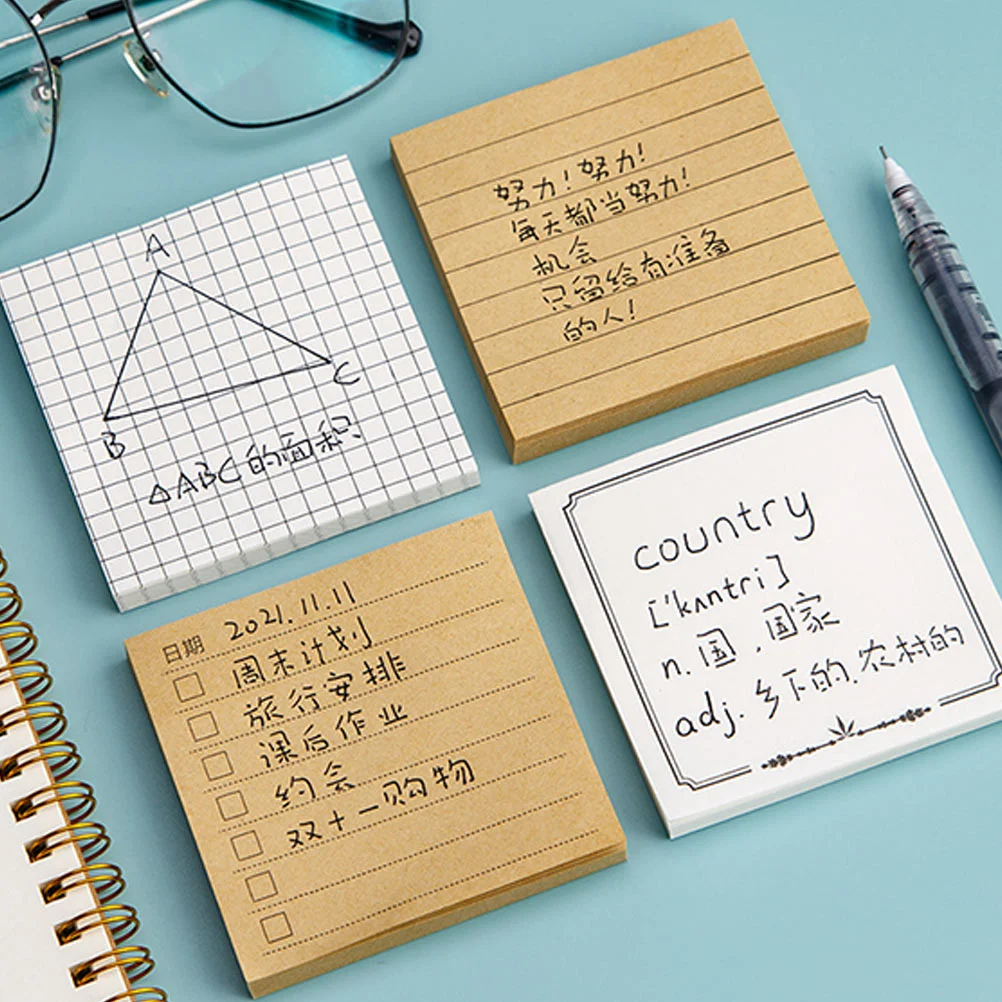 A
B
C
△ABC的面积
努力！努力！
每天都当努力！
机会
只留给有准备
的人！
日期 2021.11.11
周末计划
旅行安排
课后作业
约会
双十一购物
country
['kʌntri]
n. 国，国家
adj. 乡下的，农村的